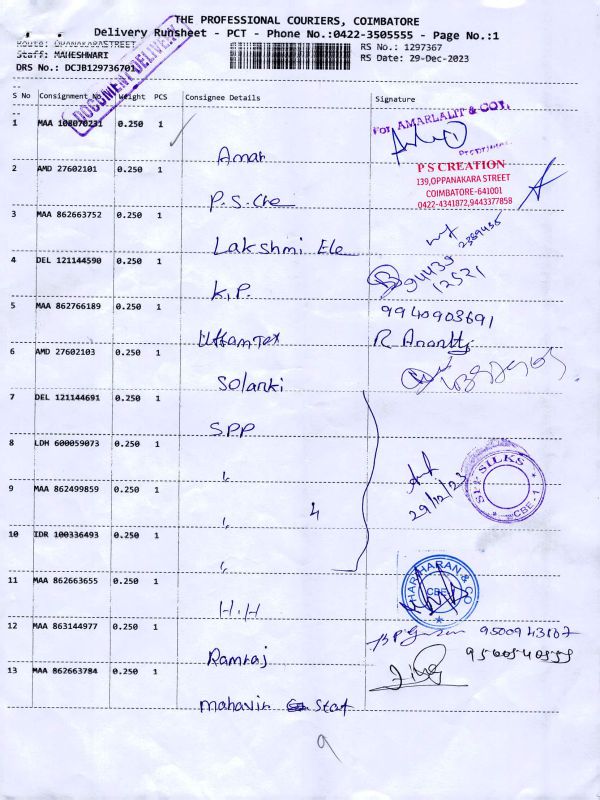 THE PROFESSIONAL COURIERS, COIMBATORE
Delivery Runsheet - PCT - Phone No.:0422-3505555 - Page No.:1
Route: OPANAKARASTREET
RS No.: 1297367
Staff: MAHESHWARI
RS Date: 29-Dec-2023
DRS No.: DCJB129736701
DOCUMENT DELIVERY
S No Consignment No Weight PCS Consignee Details Signature
1 MAA 108070231 0.250 1 Amar
For AMARLALIT & CO.,
2 AMD 27602101 0.250 1 P.S.Cre
P S CREATION
139,OPPANAKARA STREET
COIMBATORE-641001
0422-4341872,9443377858
3 MAA 862663752 0.250 1 Lakshmi Ele
2389435
4 DEL 121144590 0.250 1 K.P.
94439
12521
5 MAA 862766189 0.250 1 UttamTex
9940903691
R Ananth
6 AMD 27602103 0.250 1 Solanki
7 DEL 121144691 0.250 1 SPP
8 LDH 600059073 0.250 1 "
29/12/23
SPP SILKS
CBE-1
9 MAA 862499859 0.250 1 " 4
10 IDR 100336493 0.250 1 "
11 MAA 862663655 0.250 1 H.H
HARIHARAN & CO
CBE
12 MAA 863144977 0.250 1 Ramraj
9500943167
13 MAA 862663784 0.250 1 Mahavir Stat
9500540559
9